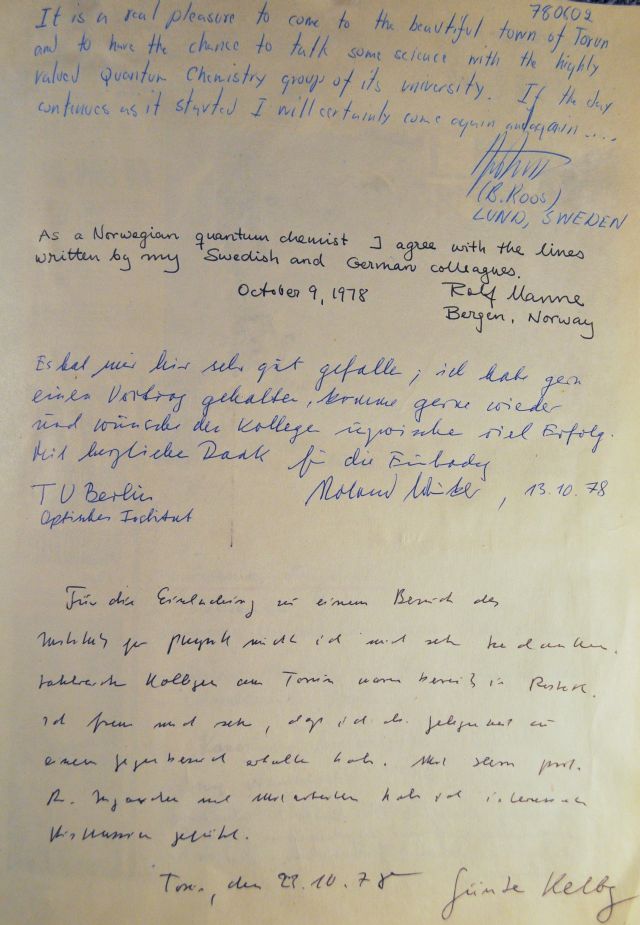 780602
It is a real pleasure to come to the beautiful town of Torun
and to have the chance to talk some science with the highly
valued Quantum Chemistry group of its university. If the day
continues as it started I will certainly come again and again ....
(B. ROOS)
LUND, SWEDEN
As a Norwegian quantum chemist I agree with the lines
written by my Swedish and German colleagues.
October 9, 1978 Rolf Manne
Bergen, Norway
Es hat mir hier sehr gut gefallen; ich habe gern
einen Vortrag gehalten, komme gerne wieder
und wünsche den Kollegen inzwischen viel Erfolg.
Mit herzlichen Dank für die Einladung
TU Berlin Roland, 13.10.78
Optisches Institut
Für die Einladung zu einem Besuch des
Instituts für Physik möchte ich mich sehr bedanken.
Zahlreiche Kollegen aus Torun waren bereits in Rostock.
Ich freue mich sehr, daß ich die Gelegenheit zu
einem Gegenbesuch erhalten habe. Mit Herrn Prof.
R. Ingarden und Mitarbeitern habe ich
Diskussionen geführt.
Torun, den 23.10.78 Günter Kelbg